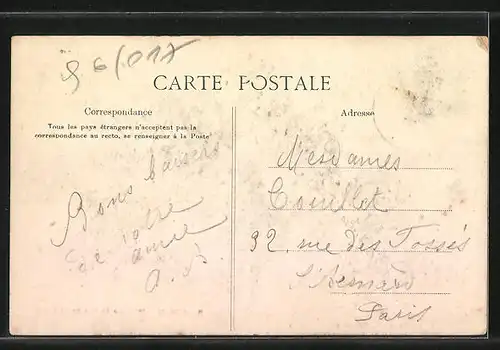 96/017
CARTE POSTALE
Correspondance
Tous les pays étrangers n'acceptent pas la
correspondance au recto, se renseigner à la Poste
Bons baisers
de votre
amie
Adresse
Mesdames
Couillet
32, rue des Fossés
St Bernard
Paris